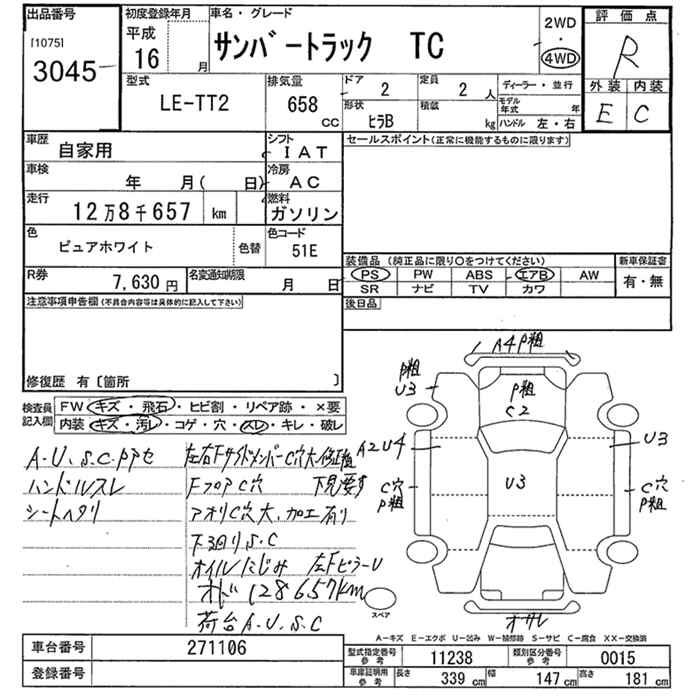 出品番号
[1075]
3045
初度登録年月
平成
16 月
車名・グレード
サンバートラック TC
2WD
・
4WD
評価点
R
外装 内装
E C
型式
LE-TT2
排気量
658
CC
ドア
2
定員
2 人
形状
ヒラB
積載
kg
ディーラー・並行
モデル年式 年
ハンドル 左・右
車歴
自家用
シフト
IAT
車検
年 月( 日)
冷房
AC
走行
12万8千657 km
燃料
ガソリン
色
ピュアホワイト
色替
色コード
51E
R券
7,630 円
名変通知期限
月 日
セールスポイント(正常に機能するものに限ります)
装備品(純正品に限り○をつけてください)
PS PW ABS エアB AW
SR ナビ TV カワ
新車保証書
有・無
後日品
注意事項申告欄(不具合内容等は具体的に記入して下さい)
修復歴 有〔箇所 〕
検査員
記入欄
FW キズ・飛石・ヒビ割・リペア跡・×要
内装 キズ・汚レ・コゲ・穴・スレ・キレ・破レ
A.U.S.C
ハンドルスレ
シートヘタリ
左右Fサイドメンバー C穴大 修正粗
FフロアC穴 下見要す
アオリC穴大.加工有り
下回りS.C
オイルにじみ 左FピラーU
オド 128657km
荷台A.U.S.C
A4 P粗
P粗
U3
P粗
C2
A2U4
U3
U3
C穴
P粗
C穴
P粗
スペア
オサレ
A-キズ E-エクボ U-凹み W-補修跡 S-サビ C-腐食 XX-交換済
車台番号
271106
登録番号
型式指定番号
参考
11238
類別区分番号
参考
0015
車庫証明用
参考
長さ
339 cm
幅
147 cm
高さ
181 cm